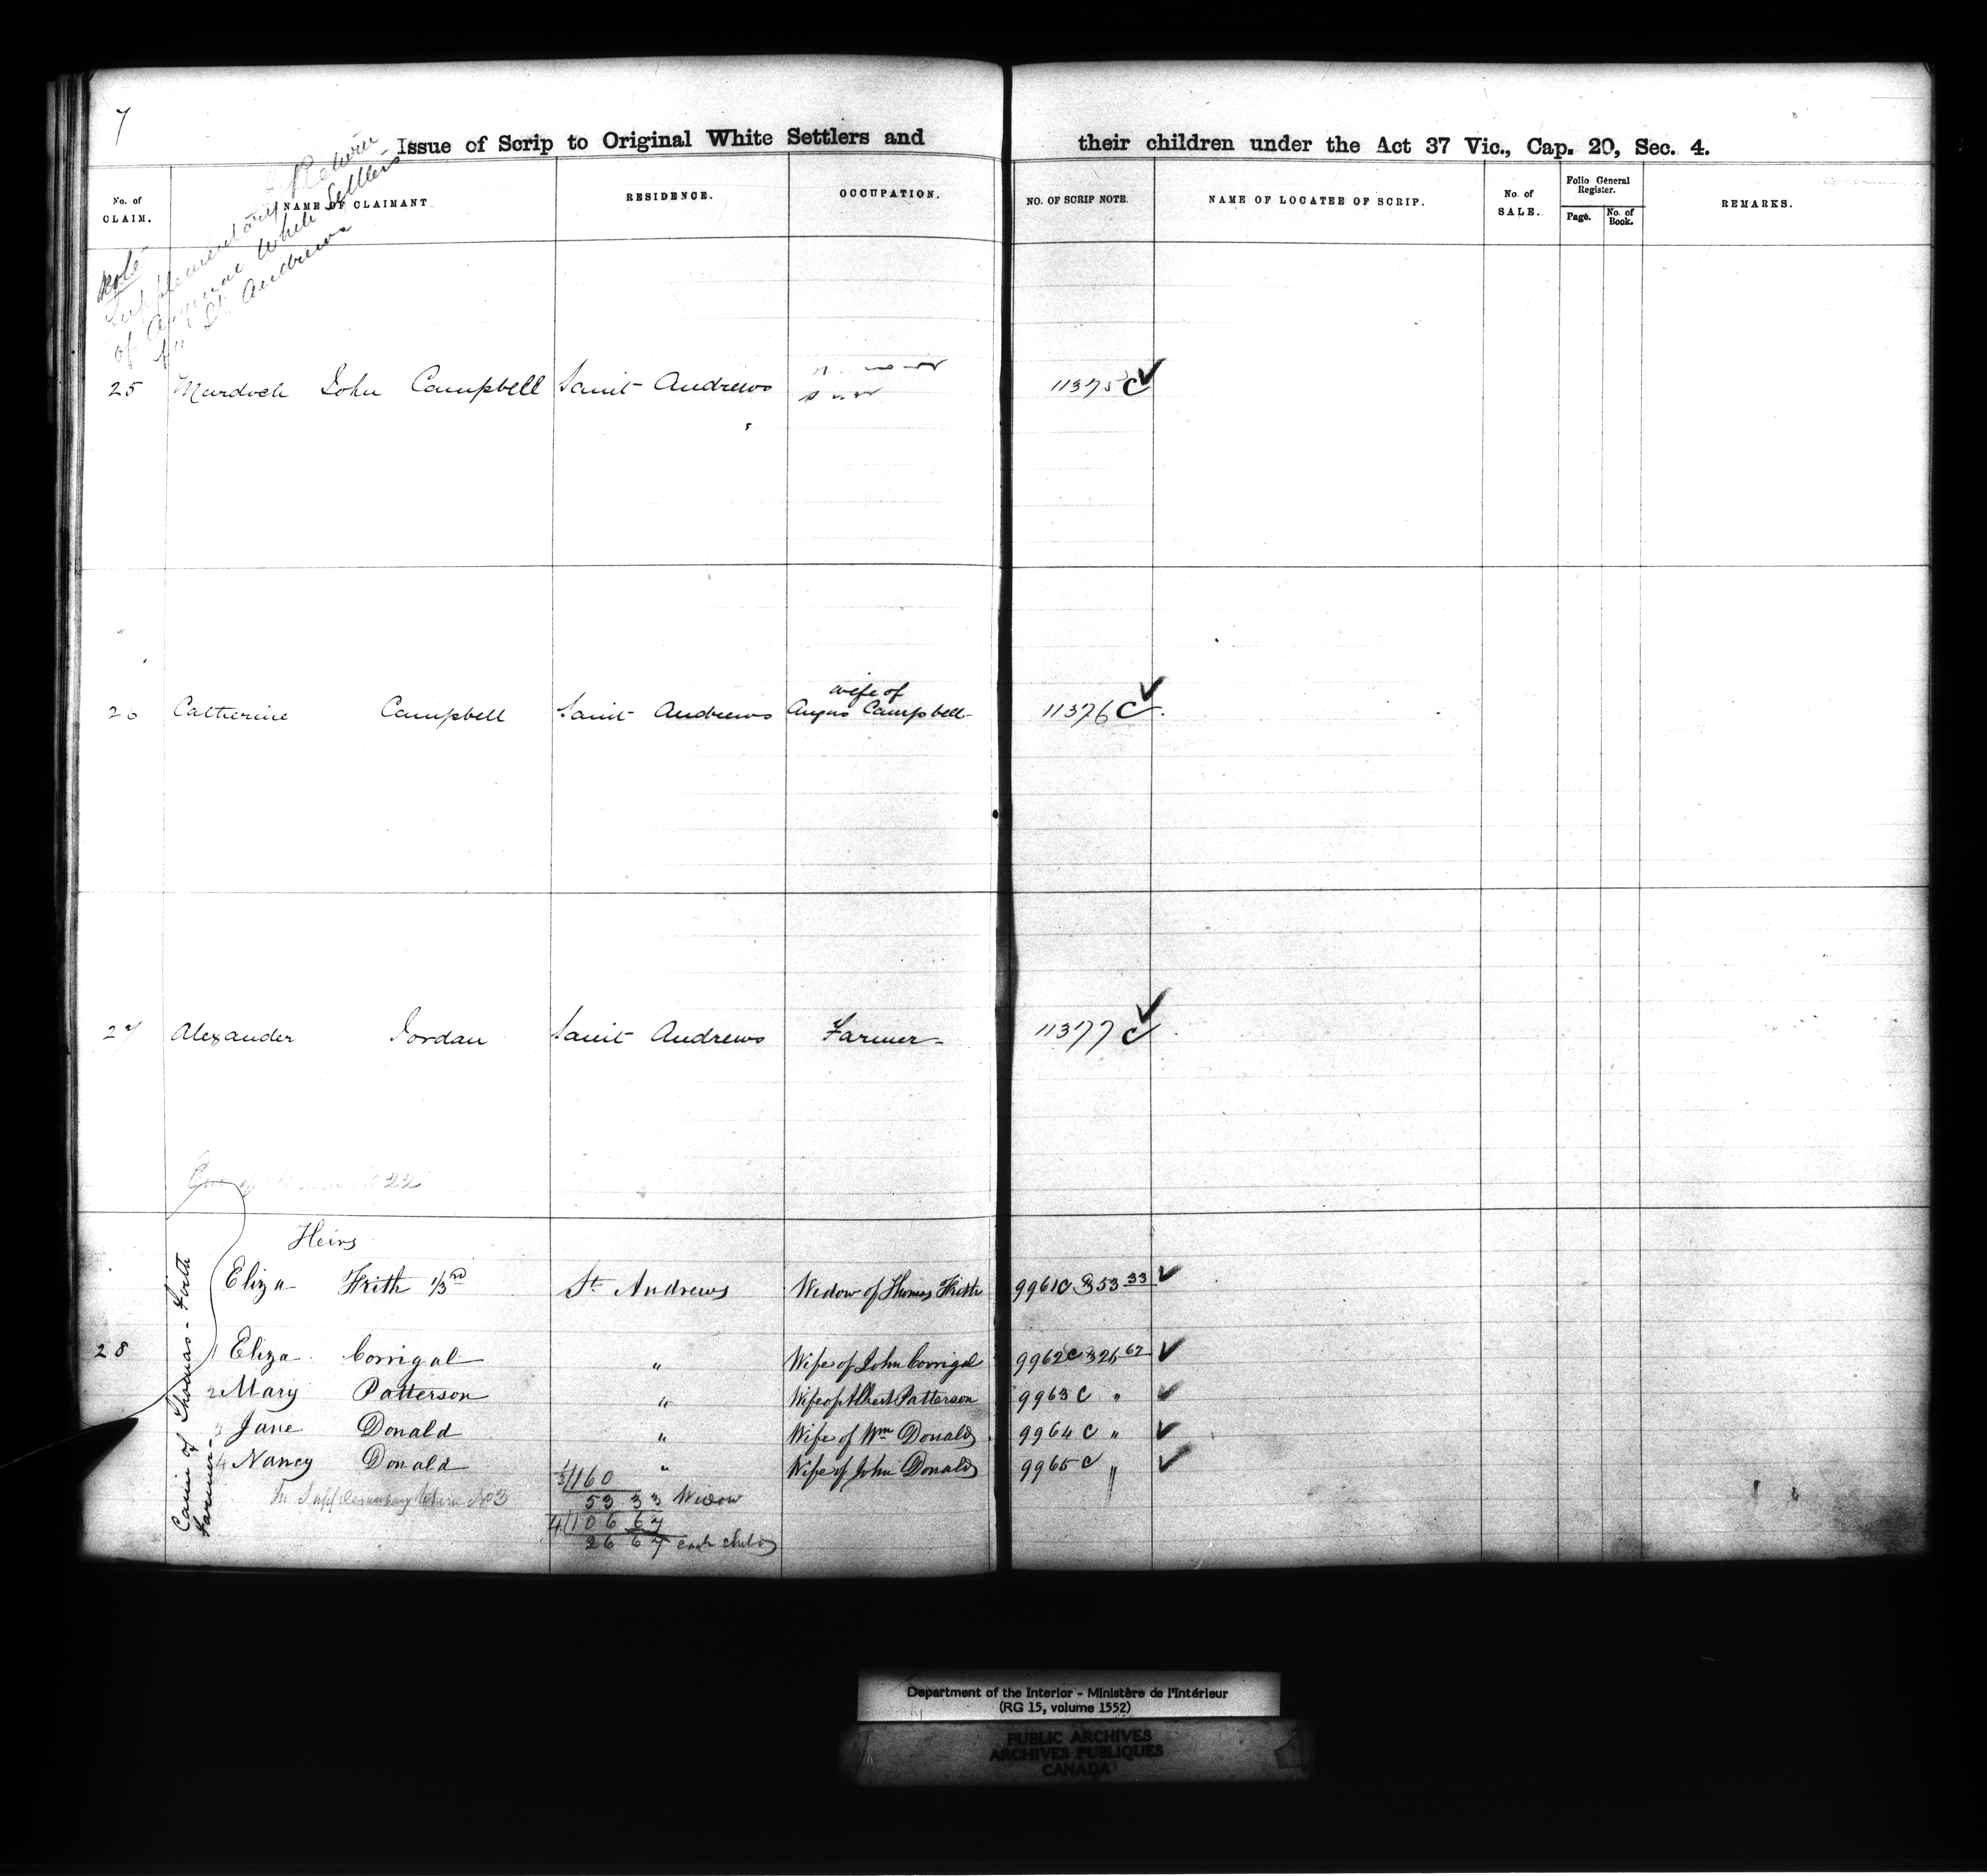 7
Issue of Scrip to Original White Settlers and their children under the Act 37 Vic., Cap. 20, Sec. 4.
No. of CLAIM. NAME OF CLAIMANT RESIDENCE. OCCUPATION. NO. OF SCRIP NOTE. NAME OF LOCATEE OF SCRIP. No. of SALE. Folio General Register. Page. No. of Book. REMARKS.
Note
Supplementary Return
of Original White Settlers
for St. Andrews
25 Murdoch John Campbell Saint Andrews 11375 C ✓
wife of
26 Catherine Campbell Saint Andrews Angus Campbell 11376 C ✓
27 Alexander Jordan Saint Andrews Farmer 11377 C ✓
22
Heirs
Claim of Thomas Firth
Farmer
Eliza Frith 1/3rd St Andrews Widow of Thomas Frith 9961C $53 33 ✓
28 1 Eliza Corrigal " Wife of John Corrigal 9962C $26 67 ✓
2 Mary Patterson " Wife of Albert Patterson 9963 C " ✓
3 Jane Donald " Wife of Wm Donald 9964 C " ✓
4 Nancy Donald " Wife of John Donald 9965 C " ✓
In Supplementary Return No 3
1/3/160
53 33 Widow
4/106 67
26 67 each child
Department of the Interior - Ministère de l'Intérieur
(RG 15, volume 1552)
PUBLIC ARCHIVES
ARCHIVES PUBLIQUES
CANADA